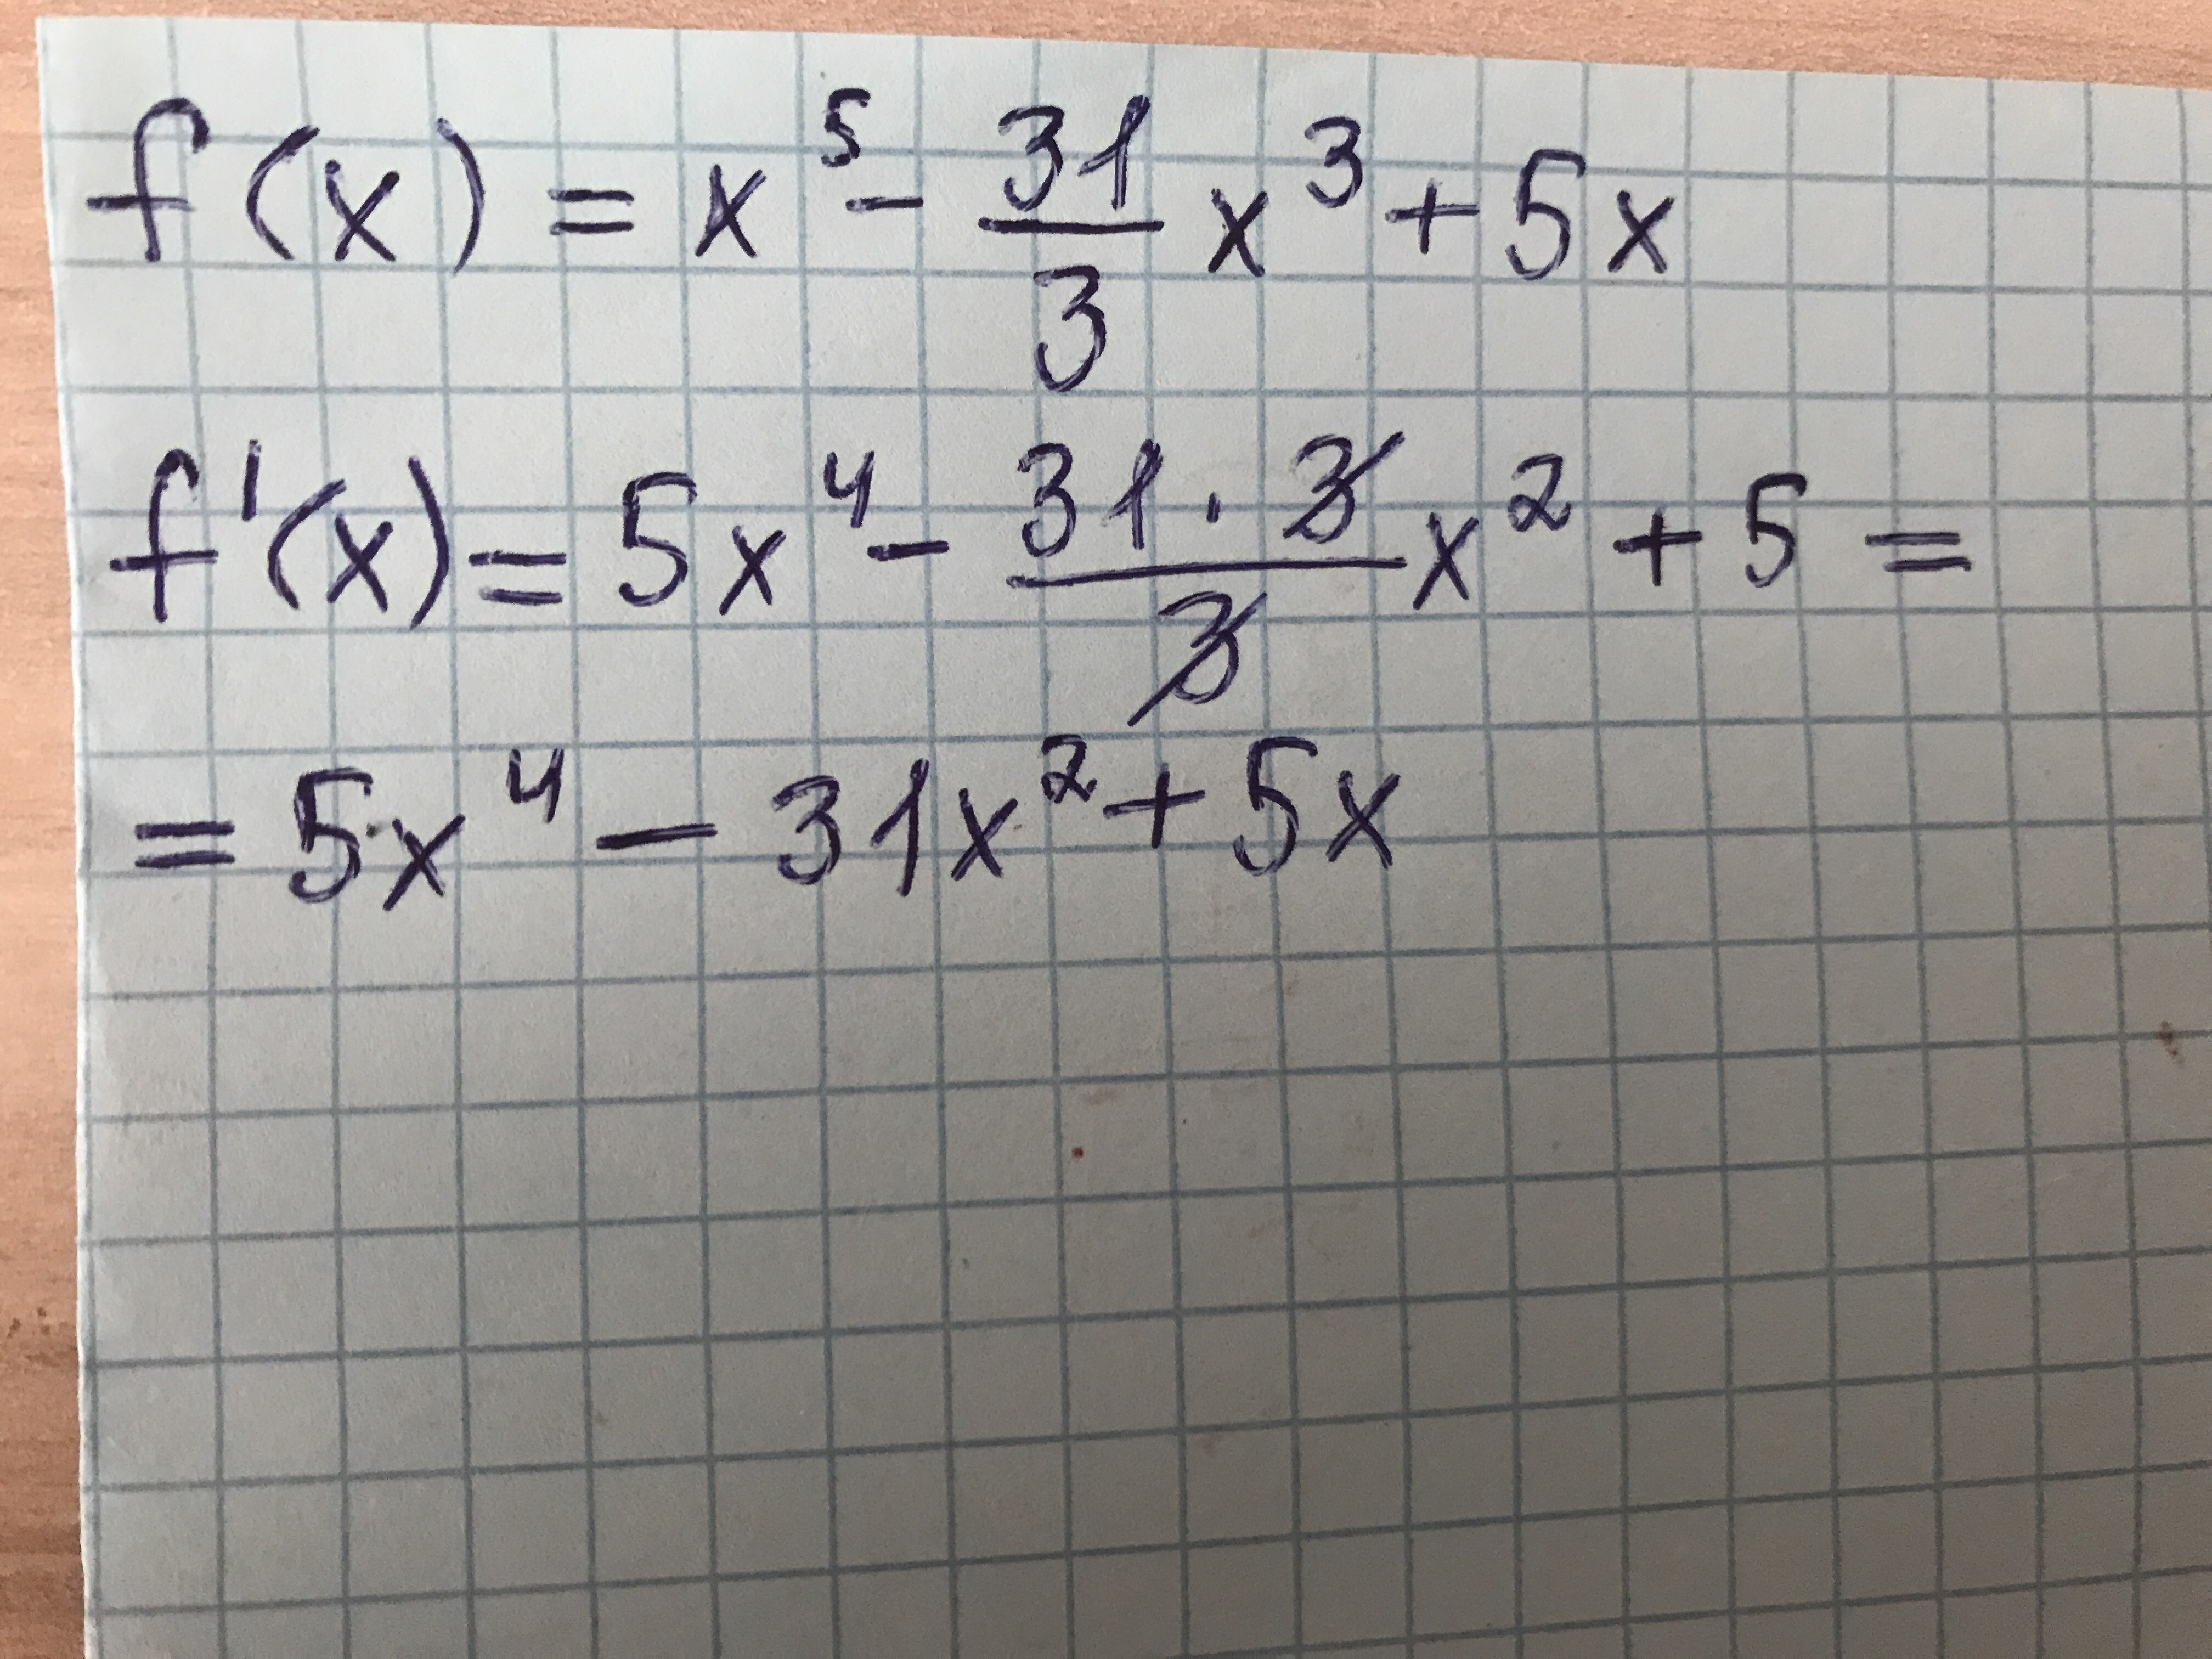 f(x) = x⁵ - 31/3 x³ + 5x
f'(x) = 5x⁴ - 31·3/3 x² + 5 =
= 5x⁴ - 31x² + 5x